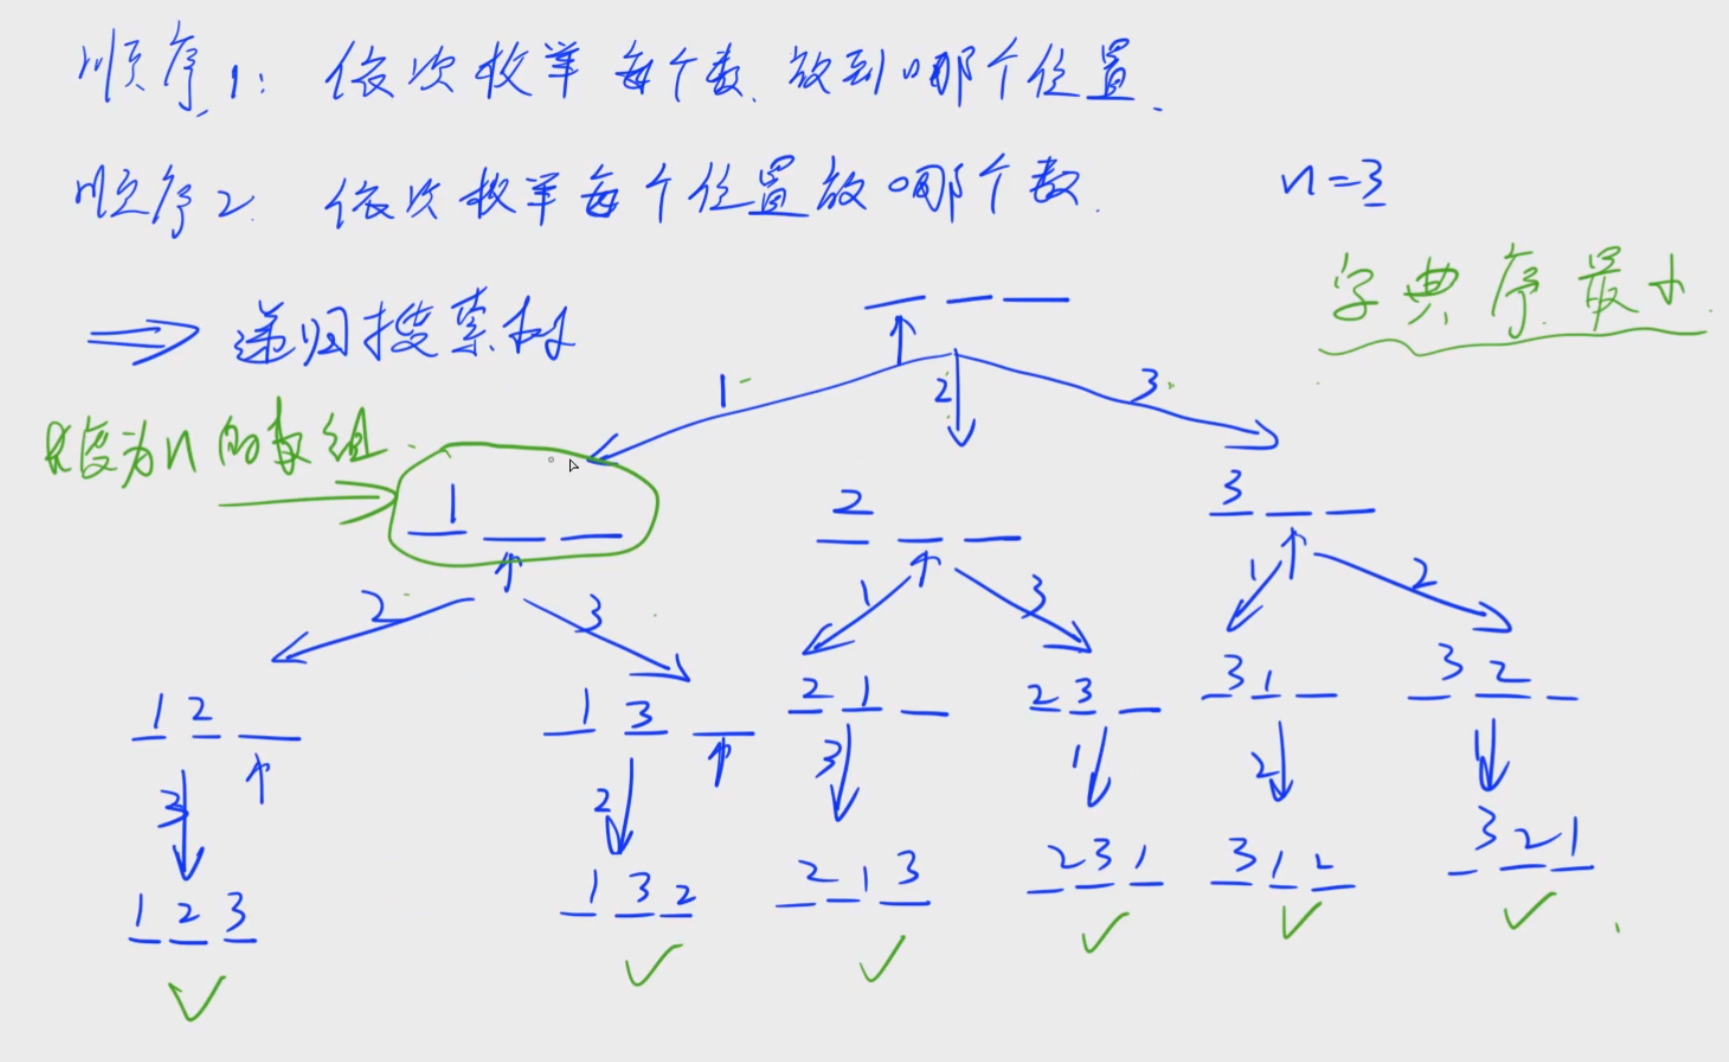 顺序1: 依次枚举每个数放到哪个位置.
顺序2 依次枚举每个位置放哪个数.
n=3
字典序最小.
⇒ 递归搜索树
1 2 3
长度为n的数组
1
2
3
2 3
1 3
1 2
1 2
1 3
2 1
2 3
3 1
3 2
3 2 3 1 2 1
1 2 3
1 3 2
2 1 3
2 3 1
3 1 2
3 2 1